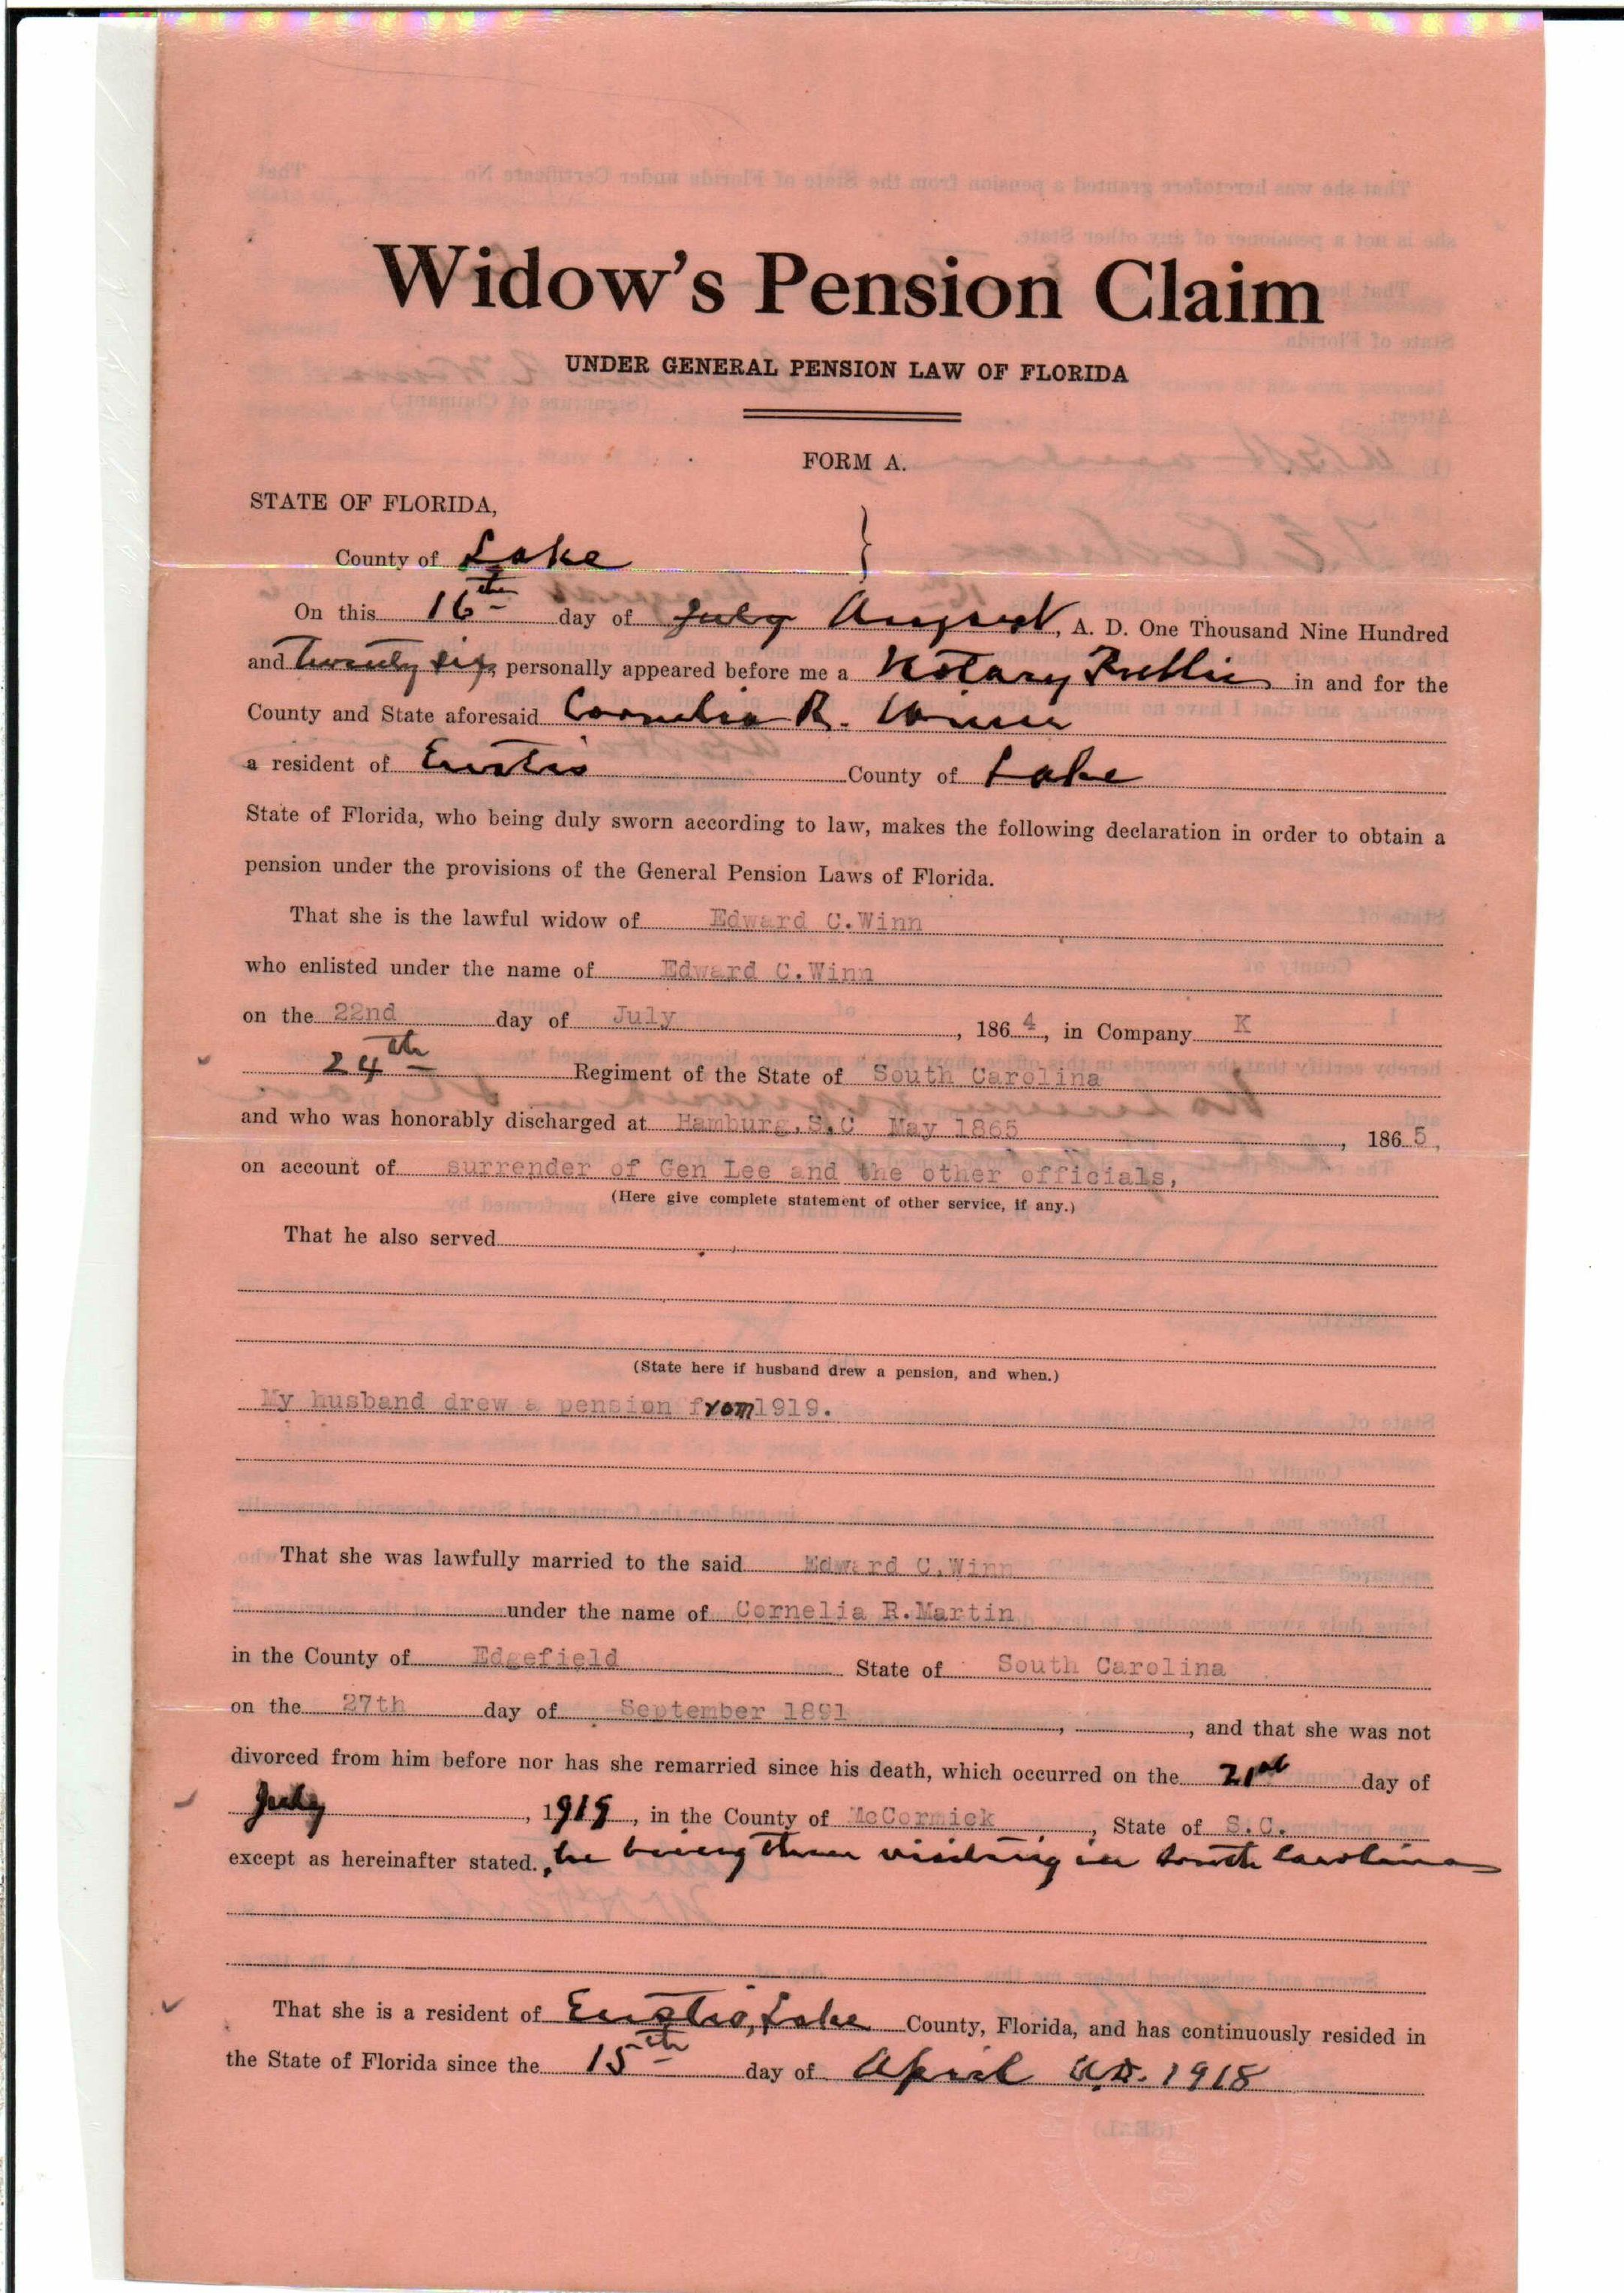 Widow's Pension Claim
UNDER GENERAL PENSION LAW OF FLORIDA
FORM A.
STATE OF FLORIDA,
County of Lake
On this 16th day of July August, A. D. One Thousand Nine Hundred
and Twenty six personally appeared before me a Notary Public in and for the
County and State aforesaid Cornelia R. Winn
a resident of Eustis County of Lake
State of Florida, who being duly sworn according to law, makes the following declaration in order to obtain a
pension under the provisions of the General Pension Laws of Florida.
That she is the lawful widow of Edward C.Winn
who enlisted under the name of Edward C.Winn
on the 22nd day of July, 1864, in Company K
24th Regiment of the State of South Carolina
and who was honorably discharged at Hamburg,S.C May 1865, 1865,
on account of surrender of Gen Lee and the other officials,
(Here give complete statement of other service, if any.)
That he also served
(State here if husband drew a pension, and when.)
My husband drew a pension from 1919.
That she was lawfully married to the said Edward C.Winn
under the name of Cornelia R.Martin
in the County of Edgefield State of South Carolina
on the 27th day of September 1891, , and that she was not
divorced from him before nor has she remarried since his death, which occurred on the 21st day of
July, 191, in the County of McCormick, State of S.C.
except as hereinafter stated., he being then visiting in South Carolina
That she is a resident of Eustis, Lake County, Florida, and has continuously resided in
the State of Florida since the 15th day of April A.D. 1918